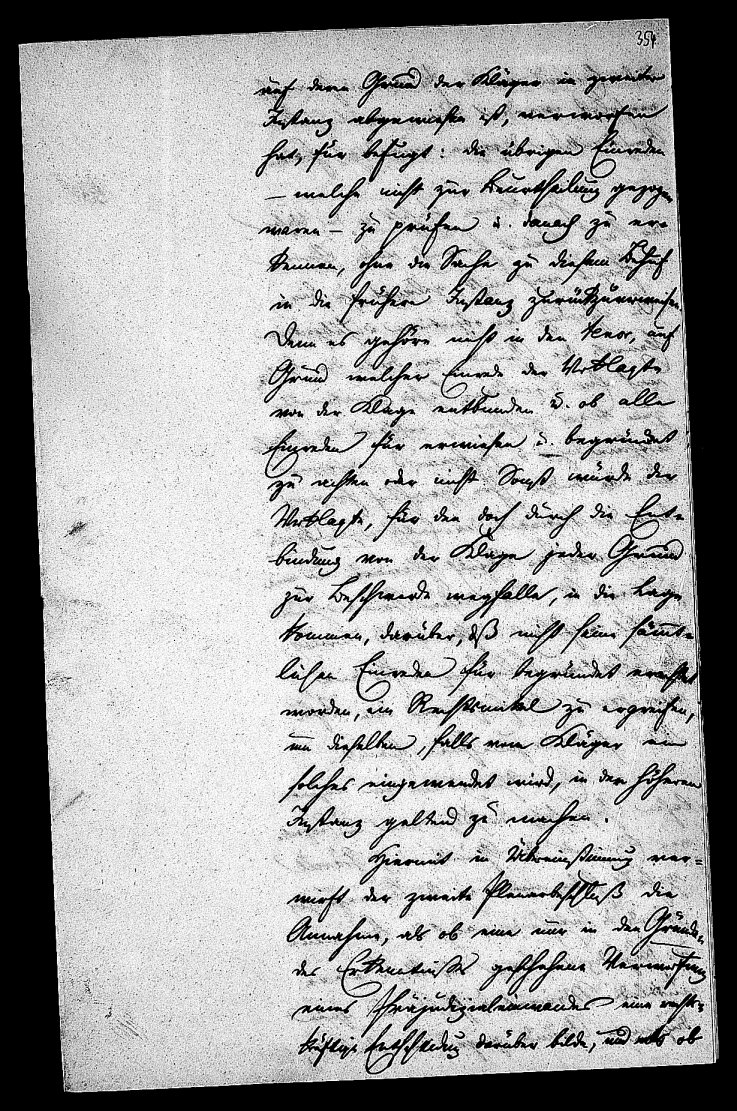 354
auf deren Grund der Kläger in zweiter
Instanz abgewiesen ist, verworfen
hat, für befugt: die übrigen Einreden
– welche nicht zur Beurtheilung gezogen
waren – zu prüfen u. danach zu er-
kennen, ohne die Sache zu diesem Behuf
in die frühere Instanz zurückzuverweisen.
Denn es gehöre nicht in den Tenor, auf
Grund welcher Einrede der Verklagte
von der Klage entbunden u. ob alle
Einreden für erwiesen u. begründet
zu achten oder nicht. Sonst würde der
Verklagte, für den doch durch die Ent-
bindung von der Klage jeder Grund
zur Beschwerde wegfalle, in die Lage
kommen, darüber, daß nicht seine sämmt-
lichen Einreden für begründet erachtet
worden, ein Rechtsmittel zu ergreifen,
um dieselben, falls vom Kläger ein
solches eingewendet wird, in der höheren
Instanz geltend zu machen.
Hiermit in Übereinstimmung ver-
wirft der zweite Plenarbeschluß die
Annahme, als ob eine nur in den Gründen
des Erkenntnisses geschehene Verwerfung
eines Präjudizialeinwandes eine rechts-
kräftige Entscheidung darüber bilde, und ob